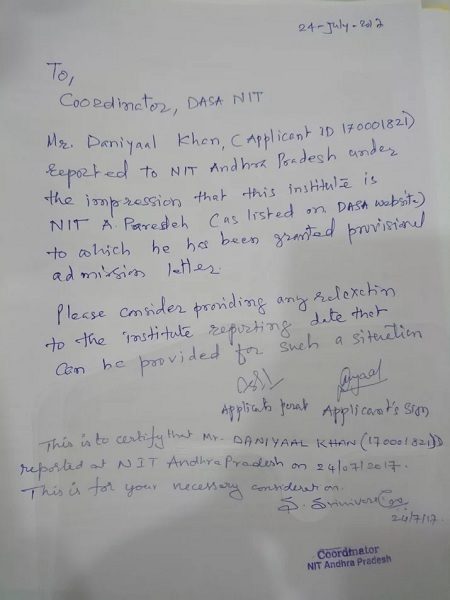 24-July-2017
To,
Coordinator, DASA NIT
Mr. Daniyaal Khan, (Applicant ID 170001821)
reported to NIT Andhra Pradesh under
the impression that this institute is
NIT A. Paresdeh (as listed on DASA website)
to which he has been granted provisional
admission letter.
Please consider providing any relexction
to the institute reporting date that
can be provided for such a situation
Applicants Applicant's Sign
This is to certify that Mr. DANIYAAL KHAN (170001821)
reported at NIT Andhra Pradesh on 24/07/2017.
This is for your necessary consideration.
24/7/17.
Coordinator
NIT Andhra Pradesh